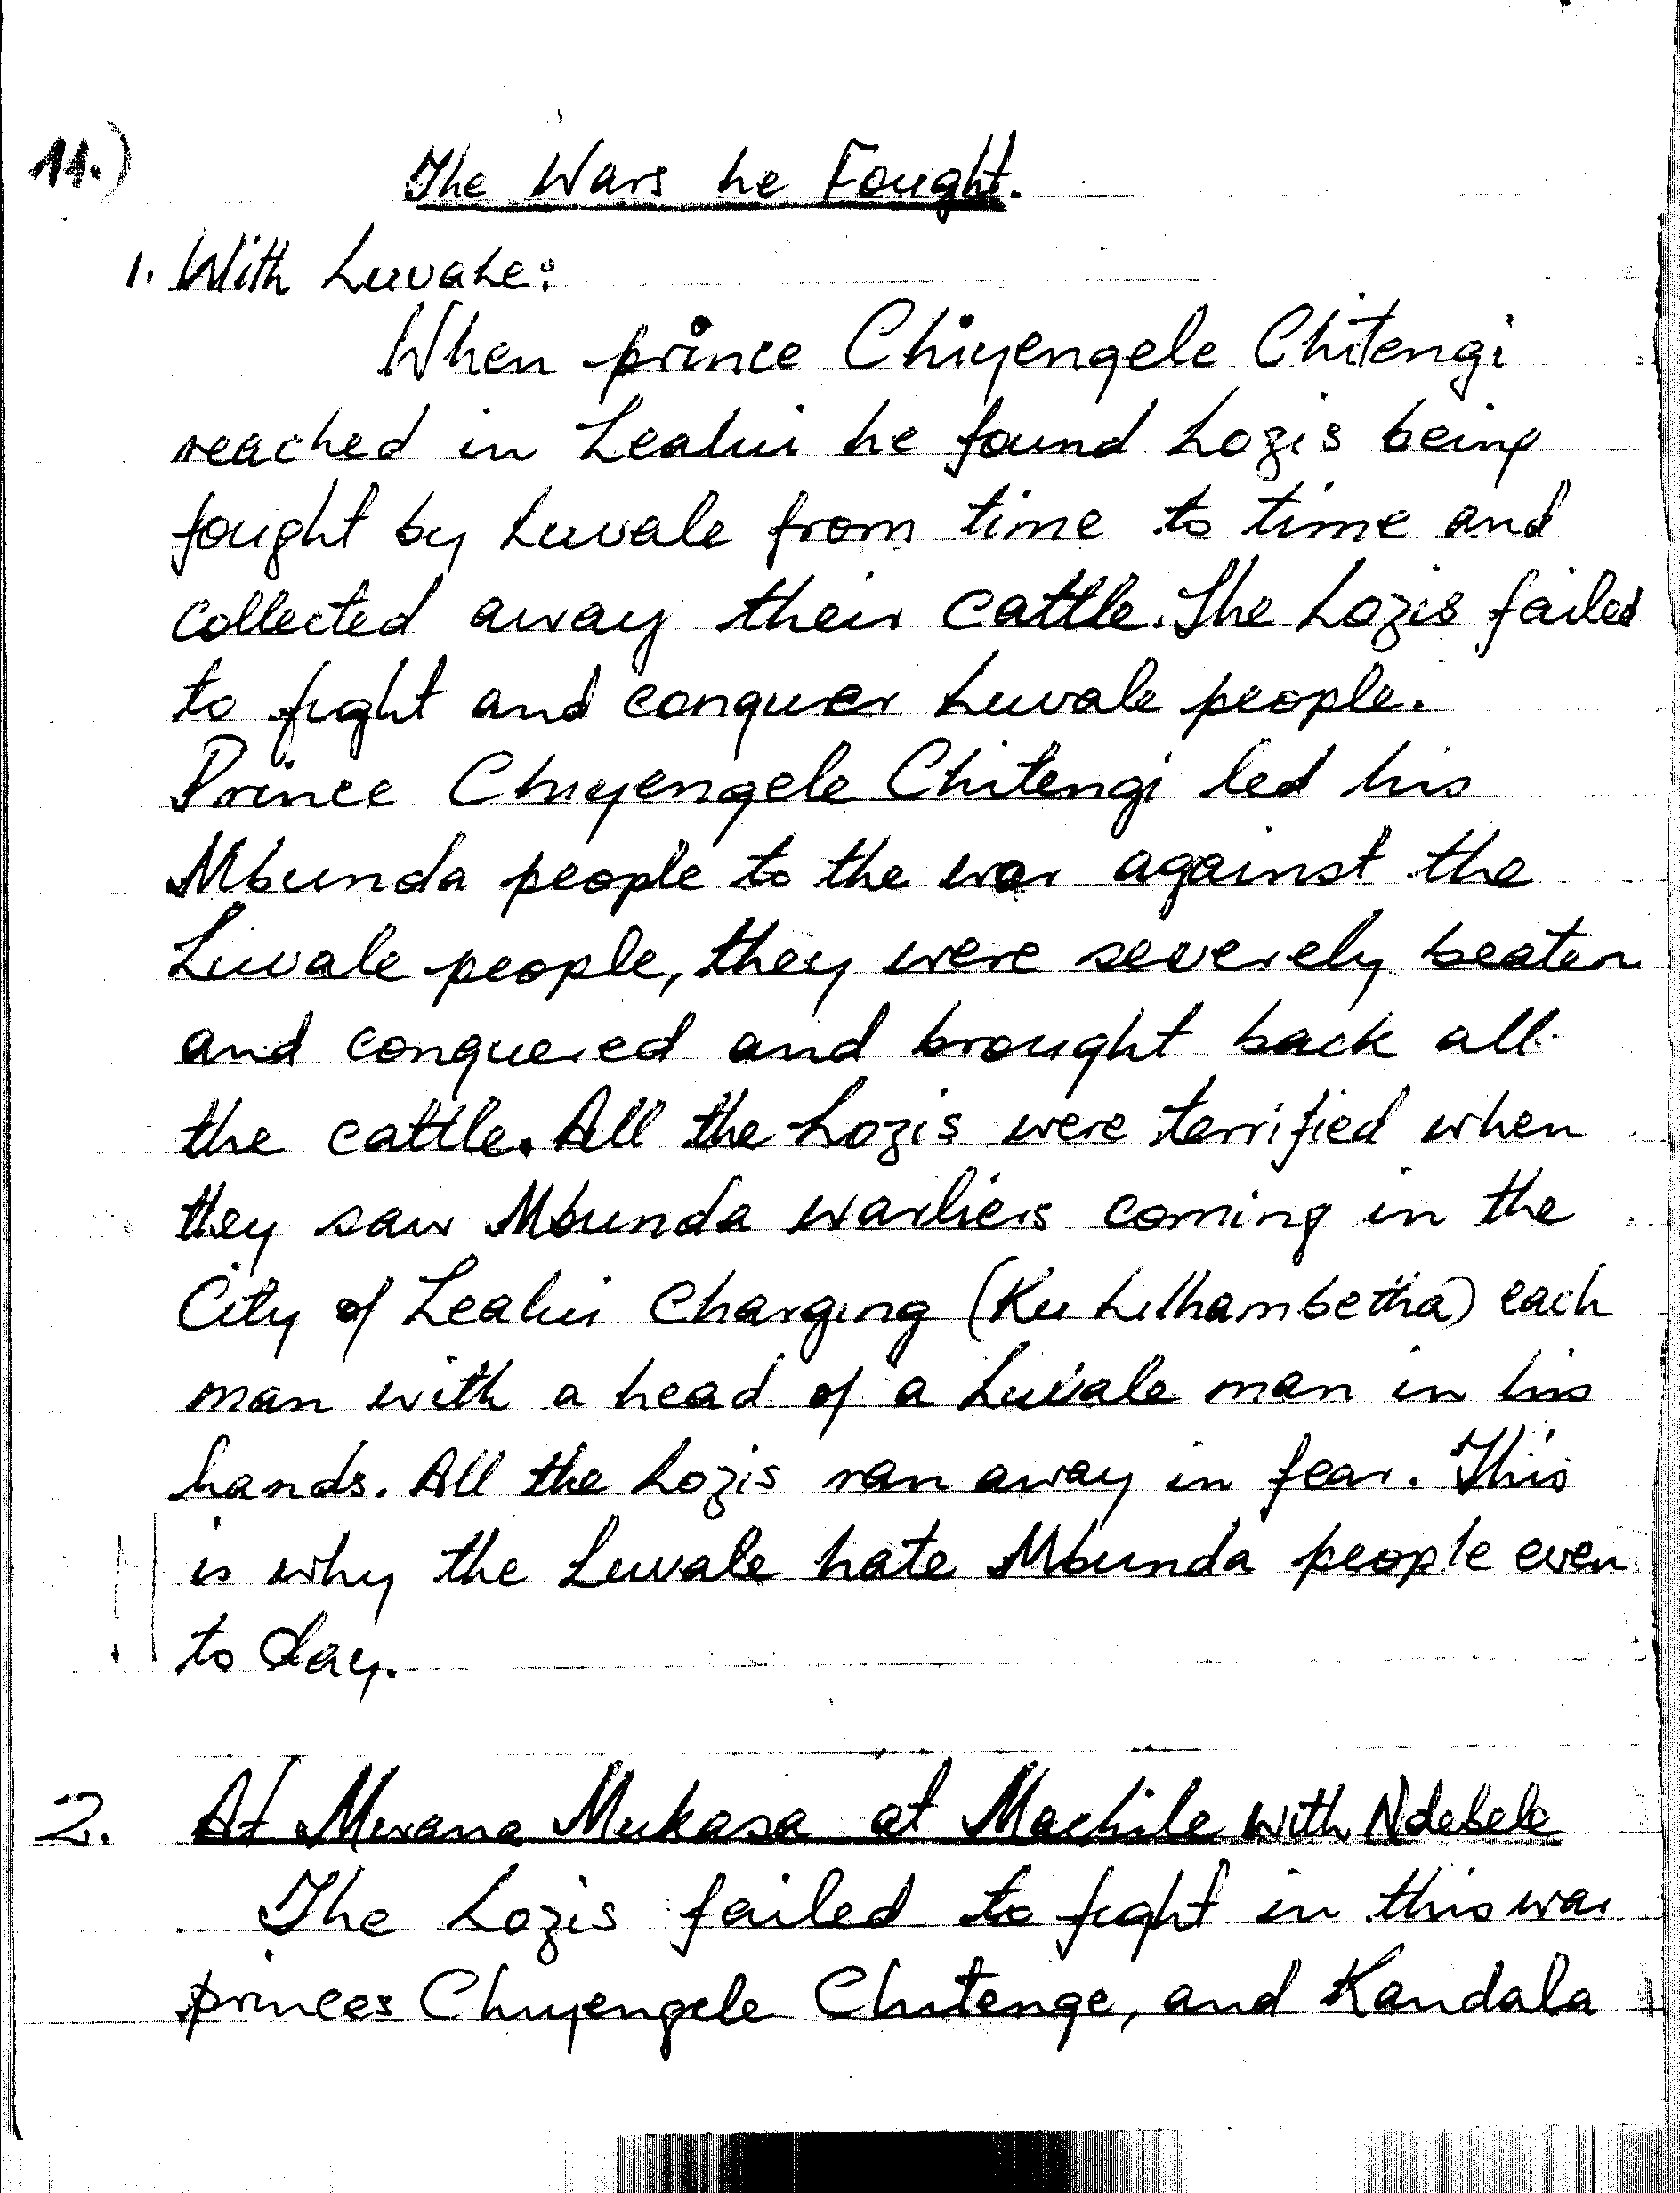 11.)
The Wars he Fought.
1. With Luvale:
When prince Chiyengele Chitengi
reached in Lealui he found Lozis being
fought by Luvale from time to time and
collected away their cattle. The Lozis failed
to fight and conquer Luvale people.
Prince Chiyengele Chitengi led his
Mbunda people to the war against the
Luvale people, they were severely beaten
and conquered and brought back all
the cattle. All the Lozis were terrified when
they saw Mbunda warliers coming in the
City of Lealui Charging (Ku Lithambetha) each
man with a head of a Luvale man in his
hands. All the Lozis ran away in fear. This
is why the Luvale hate Mbunda people even
to day.
2. At Mwana Mukasa at Machile with Ndebele
The Lozis failed to fight in this war
princes Chiyengele Chitenge, and Kandala